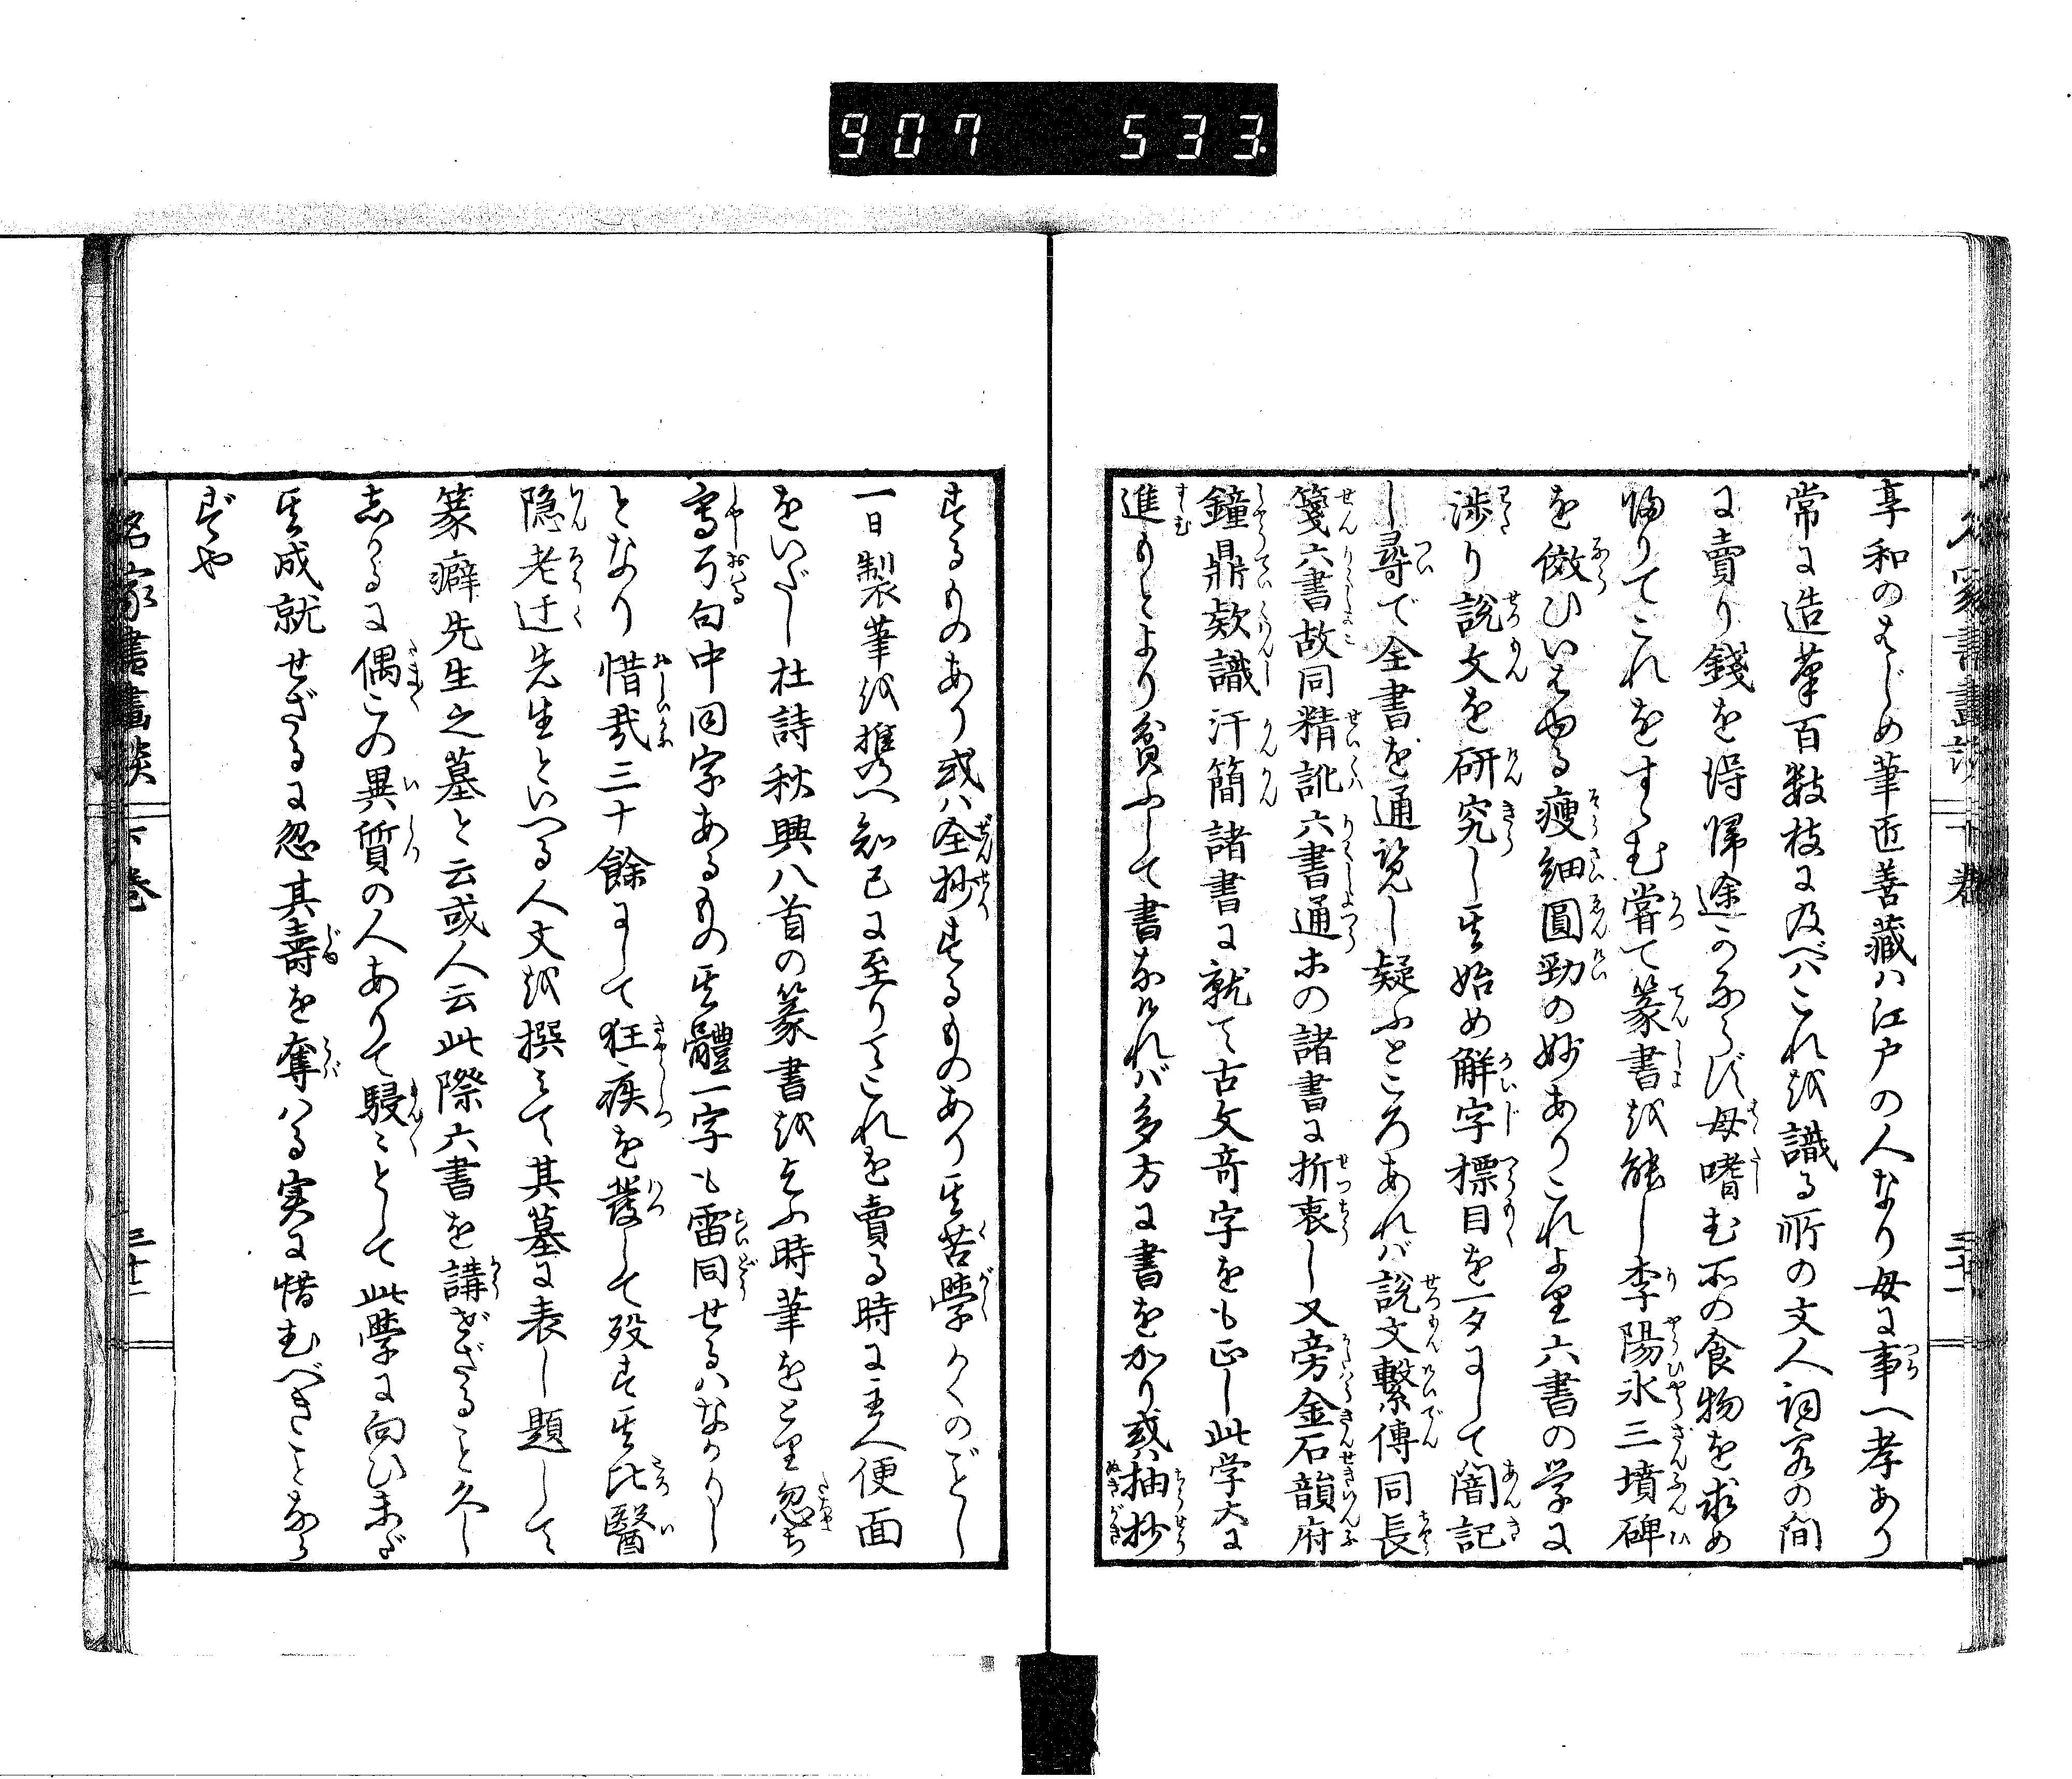 907 533
名家書畫談 下巻
享和のはじめ筆匠善藏ハ江户の人なり母に事へ孝あり
常に造筆百数枝に及べバこれを識る所の文人詞客の間
に賣り錢を得帰途かならず母嗜む所の食物を求め
帰りてこれをすゝむ嘗て篆書を能し李陽氷三墳碑
を倣ひいはゆる瘦細圓勁の妙ありこれより六書の学に
渉り說文を研究し其始め解字標目を一夕にして闇記
し尋で全書を通覽し疑ふところあれバ說文繫傳同長
箋六書故同精訛六書通等の諸書に折衷し又旁金石韻府
鐘鼎欵識汗簡諸書に就て古文奇字をも正し此学大に
進もとより貧ふして書なければ多方に書をかり或ハ抽抄
するものあり或ハ全抄するものあり其苦學かくのごとし
一日製筆を携へ知己に至りてこれを賣る時に主人便面
をいだし杜詩秋興八首の篆書を乞ふ時筆をとり忽ち
寫し了句中同字あるもの其體一字も雷同せるハなかりし
となり惜哉三十餘にして狂疾を發して殁す其比醫
隐老迂先生といへる人文を撰みて其墓に表し題して
篆癖先生之墓と云或人云此際六書を講ぜざること久し
志かるに偶この異質の人ありて駸ミとして此學に向ひ未だ
其成就せざるに忽其壽を奪ハる実に惜むべきことなら
ずや
名家書畫談 下巻